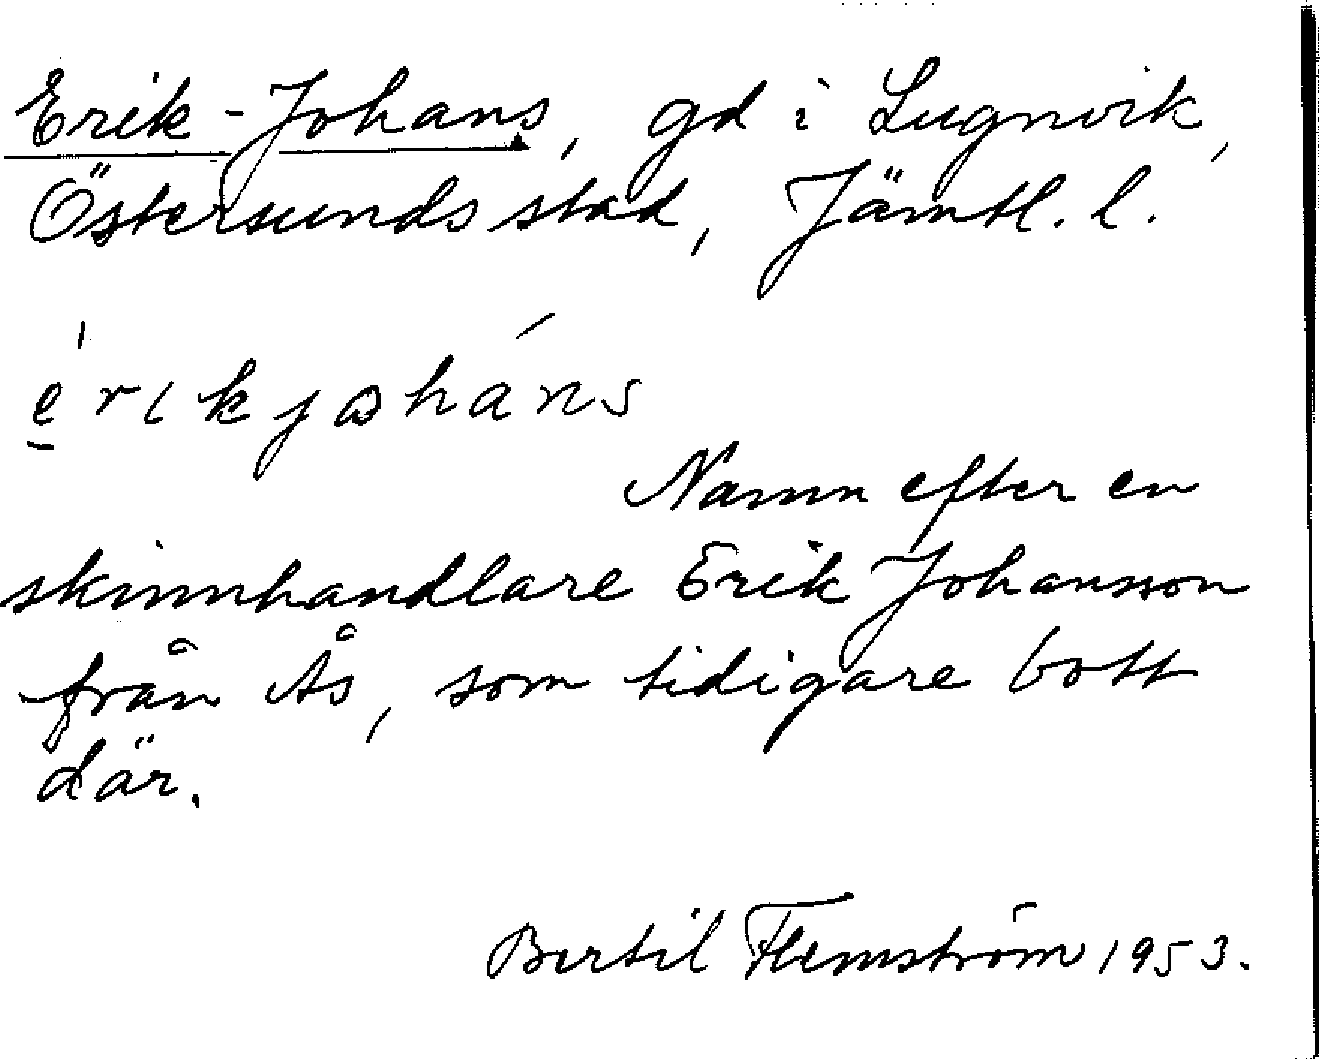 Erik-Johans, gd i Lugnvik,
Östersunds stad, Jämtl. l.
érikjoháns
Namn efter en
skinnhandlare Erik Johansson
från Ås, som tidigare bott
där.
Bertil Flemström 1953.